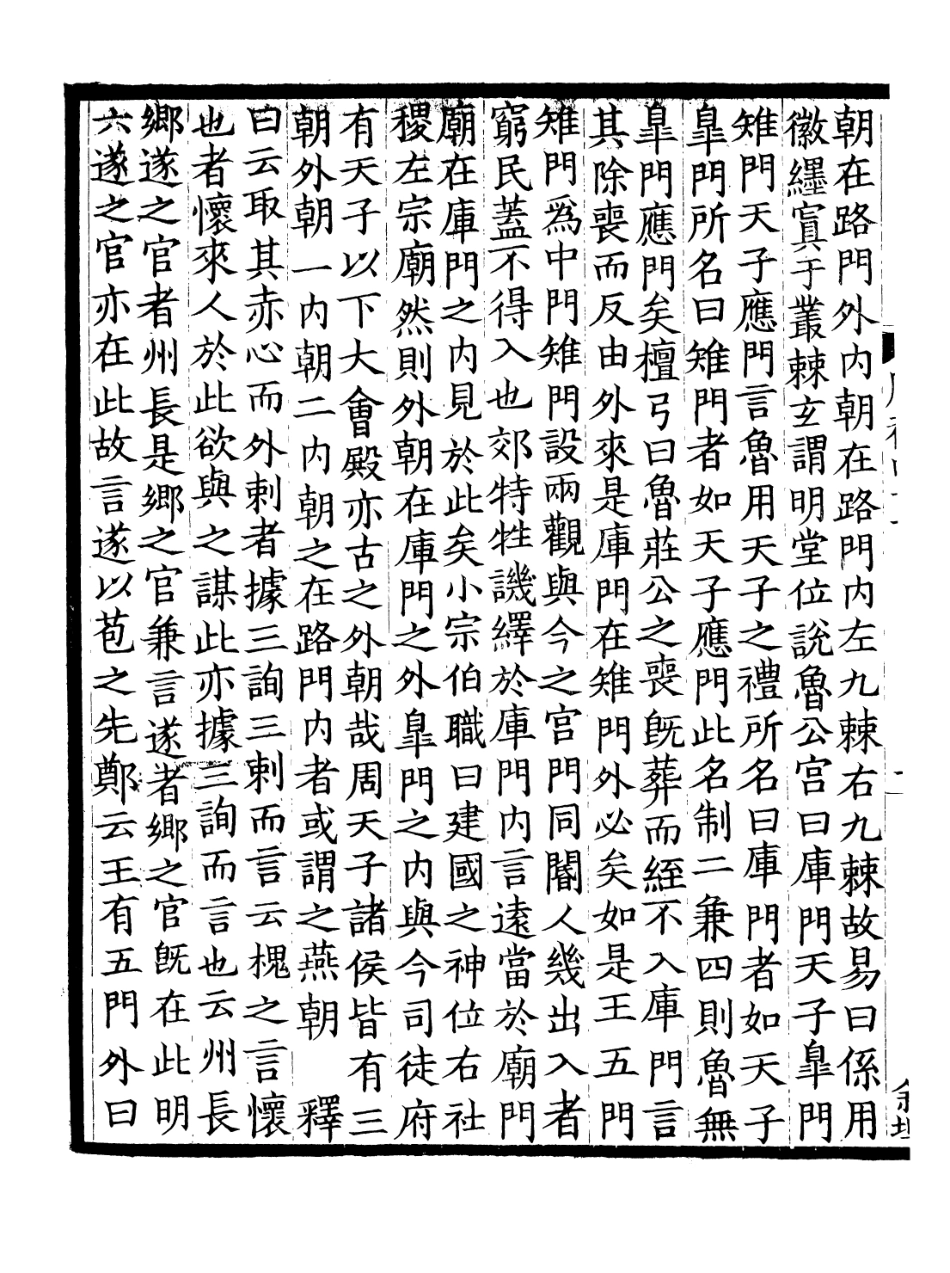 朝在路門外内朝在路門内左九棘右九棘故易曰係用
徽纆寘于叢棘玄謂明堂位說魯公宫曰庫門天子臯門
雉門天子應門言魯用天子之禮所名曰庫門者如天子
臯門所名曰雉門者如天子應門此名制二兼四則魯無
臯門應門矣檀弓曰魯莊公之喪旣葬而絰不入庫門言
其除喪而反由外來是庫門在雉門外必矣如是王五門
雉門爲中門雉門設兩觀與今之宫門同閽人幾出入者
窮民蓋不得入也郊特牲譏繹於庫門内言遠當於廟門
廟在庫門之内見於此矣小宗伯職曰建國之神位右社
稷左宗廟然則外朝在庫門之外臯門之内與今司徒府
有天子以下大會殿亦古之外朝哉周天子諸侯皆有三
朝外朝一内朝二内朝之在路門内者或謂之燕朝　釋
曰云取其赤心而外刺者據三詢三刺而言云槐之言懷
也者懷來人於此欲與之謀此亦據三詢而言也云州長
鄉遂之官者州長是鄉之官兼言遂者鄉之官旣在此明
六遂之官亦在此故言遂以苞之先鄭云王有五門外曰